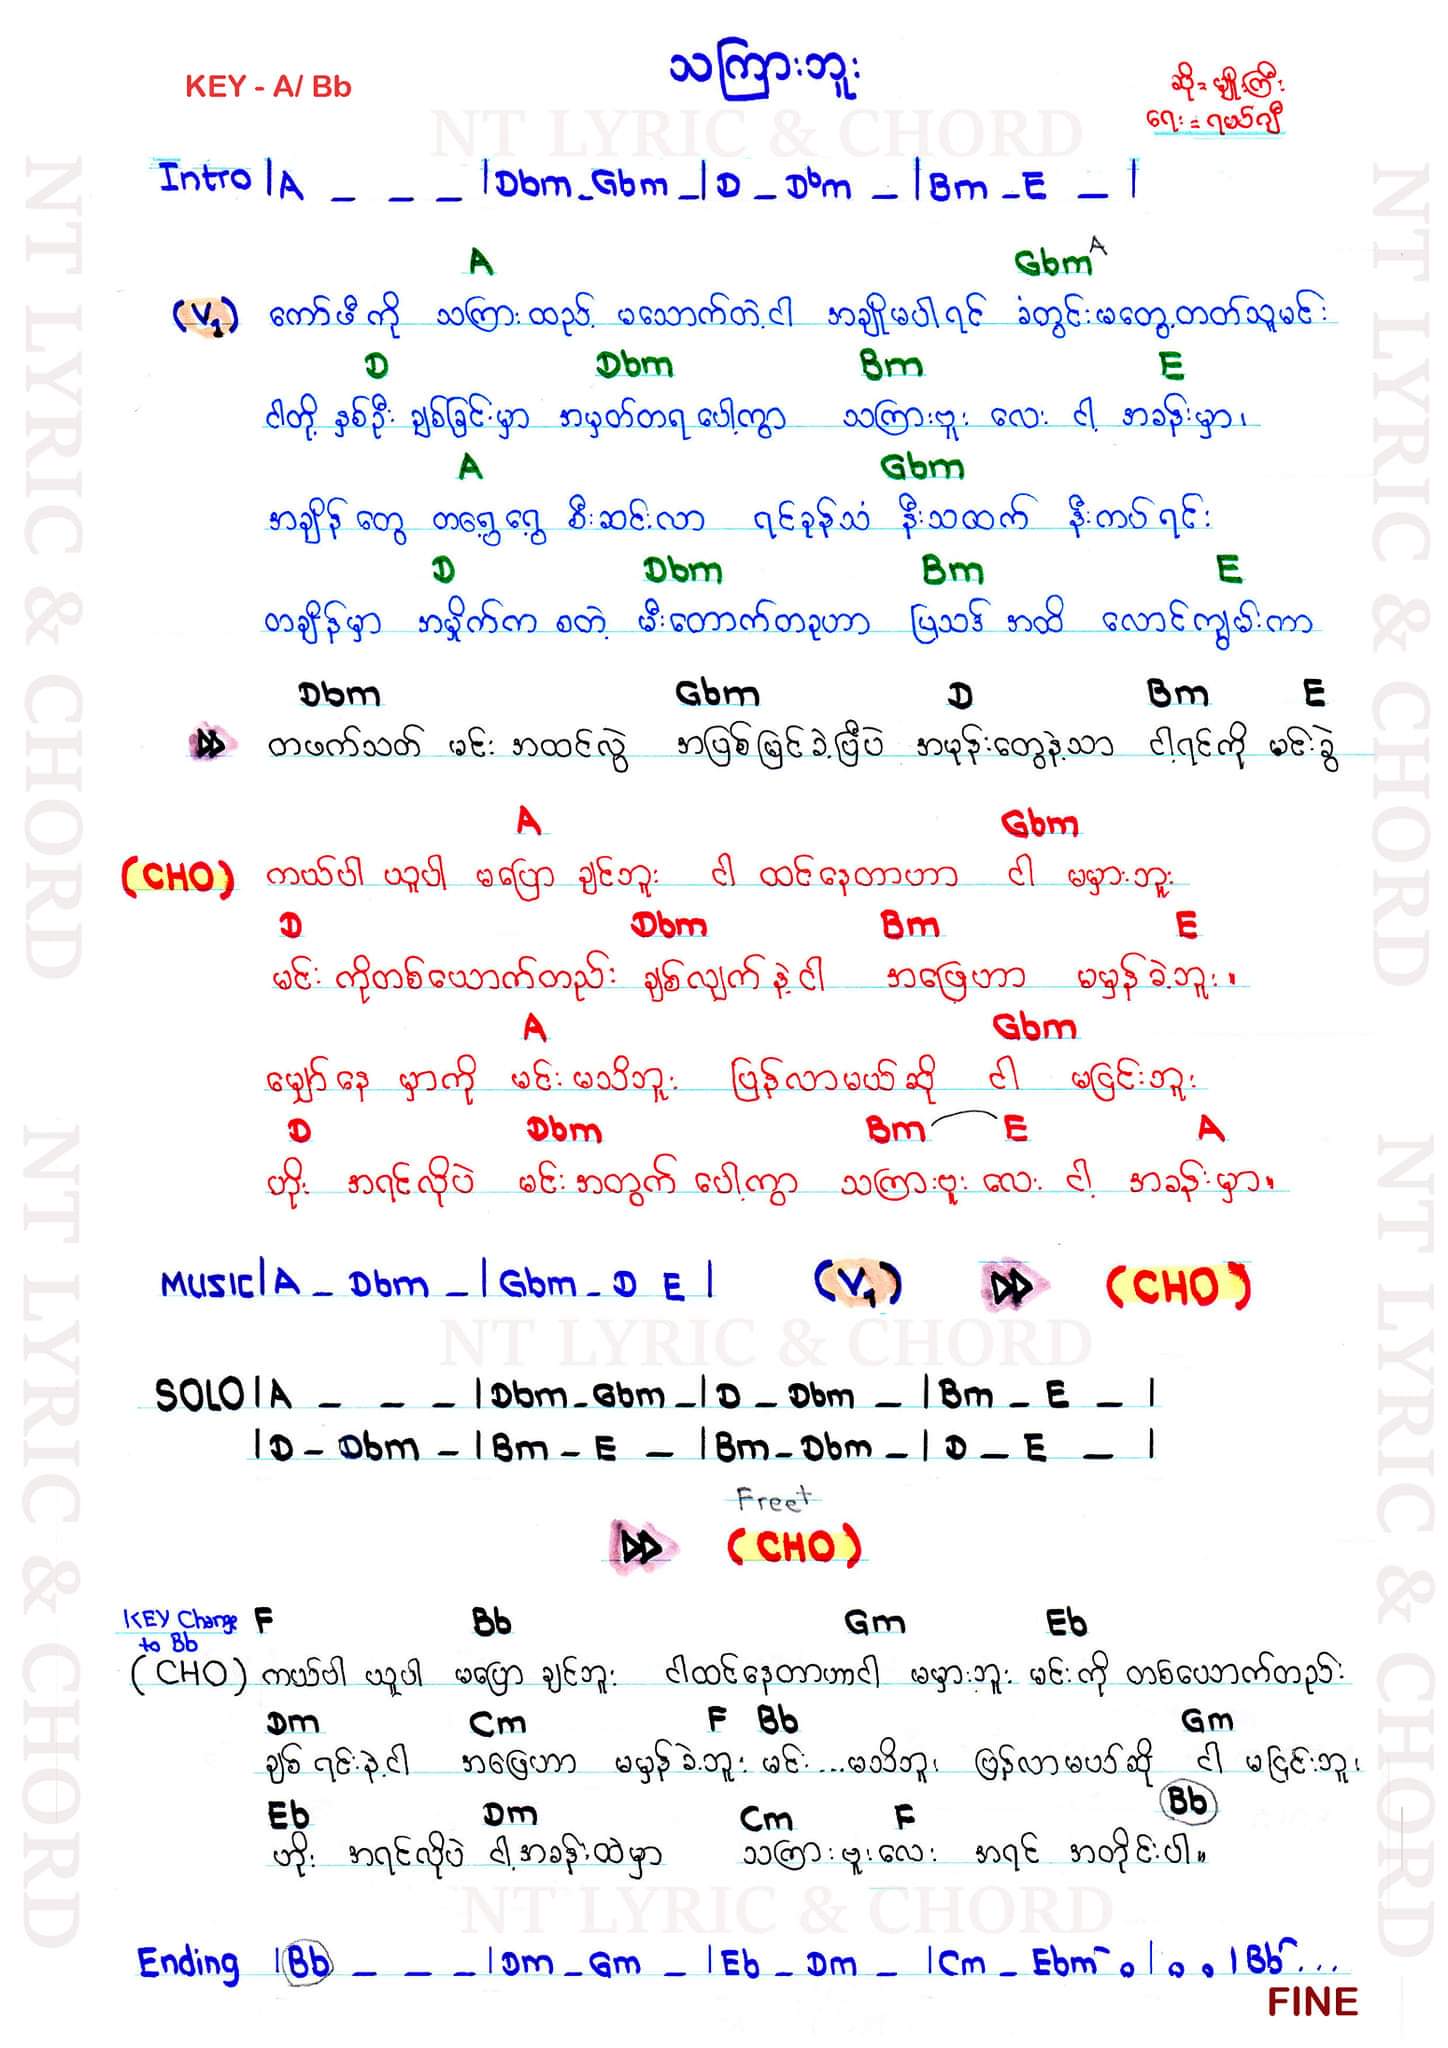 KEY - A/ Bb
သကြားဘူး
ဆို = မျိုးကြီး
ရေး = ရယ်ဂျီ
NT LYRIC & CHORD
Intro | A _ _ _ | Dbm _ Gbm _ | D _ Dbm _ | Bm _ E _ |
A Gbm A
(V1) ကော်ဖီကို သကြားထည့် မသောက်တဲ့ငါ အချိုမပါရင် ခံတွင်းမတွေ့တတ်သူမင်း
D Dbm Bm E
ငါတို့ နှစ်ဦး ချစ်ခြင်းမှာ အမှတ်တရပေါ့ကွာ သကြားဗူး လေး ငါ့ အခန်းမှာ၊
A Gbm
အချိန်တွေ တရွေ့ရွေ့ စီးဆင်းလာ ရင်ခုန်သံ နီးသထက် နီးကပ်ရင်း
D Dbm Bm E
တချိန်မှာ အမှိုက်က စတဲ့ မီးတောက်တခုဟာ ပြာသဒ် အထိ လောင်ကျွမ်းကာ
Dbm Gbm D Bm E
တဖက်သတ် မင်း အထင်လွဲ အဖြစ်မြင်ခဲ့ပြီပဲ အမုန်းတွေနဲ့သာ ငါ့ရင်ကို မင်းခွဲ
A Gbm
(CHO) ကယ်ပါ ယူပါ မပြော ချင်ဘူး ငါ ထင်နေတာဟာ ငါ မမှားဘူး
D Dbm Bm E
မင်း ကိုတစ်ယောက်တည်း ချစ်လျက်နဲ့ငါ အဖြေဟာ မမှန်ခဲ့ဘူး။
A Gbm
မျှော်နေ မှာကို မင်းမသိဘူး ပြန်လာမယ်ဆို ငါ မငြင်းဘူး
D Dbm Bm E A
ဟိုး အရင်လိုပဲ မင်းအတွက် ပေါ့ကွာ သကြားဗူး လေး ငါ့ အခန်းမှာ။
MUSIC | A _ Dbm _ | Gbm _ D E | (V1) (CHO)
NT LYRIC & CHORD
SOLO | A _ _ _ | Dbm _ Gbm _ | D _ Dbm _ | Bm _ E _ |
| D _ Dbm _ | Bm _ E _ | Bm _ Dbm _ | D _ E _ |
Free+
(CHO)
KEY Change to Bb F Bb Gm Eb
(CHO) ကယ်ပါ ယူပါ မပြော ချင်ဘူး ငါထင်နေတာဟာငါ မမှားဘူး မင်းကို တစ်ယောက်တည်း
Dm Cm F Bb Gm
ချစ် ရင်းနဲ့ငါ အဖြေဟာ မမှန်ခဲ့ဘူး မင်း...မသိဘူး၊ ပြန်လာမယ်ဆို ငါ မငြင်းဘူး၊
Eb Dm Cm F Bb
ဟိုး အရင်လိုပဲ ငါ့အခန်းထဲမှာ သကြားဗူးလေး အရင် အတိုင်းပါ။
NT LYRIC & CHORD
Ending | Bb _ _ _ | Dm _ Gm _ | Eb _ Dm _ | Cm _ Ebm o | o o | Bb ...
FINE
NT LYRIC & CHORD
NT LYRIC & CHORD
NT LYRIC & CHORD
NT LYRIC & CHORD